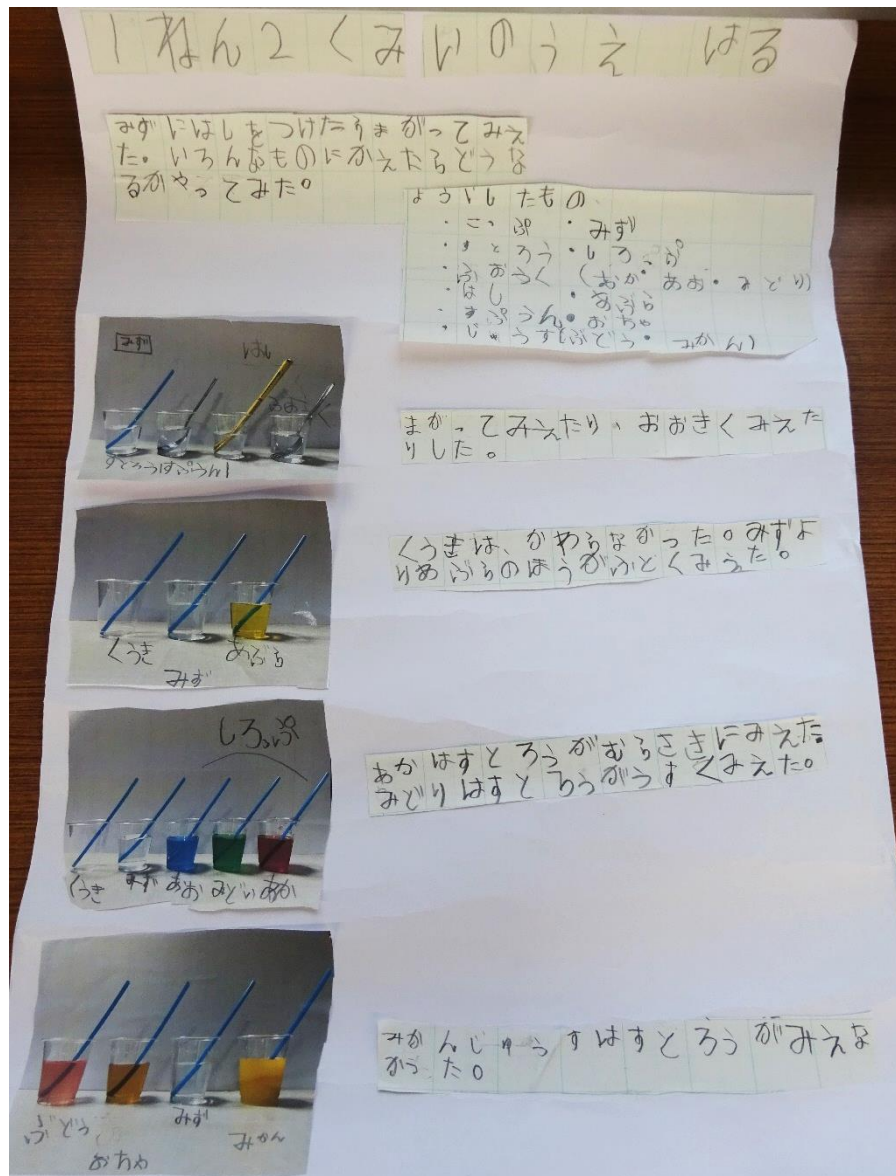 1ねん2くみ いのうえ はる
みずにはしをつけたらまがってみえ
た。いろんなものにかえたらどうな
るかやってみた。
よういしたもの
・こっぷ ・みず
・すとろう ・しろっぷ
・ふおうく (あか・あお・みどり)
・はし ・あぶら
・すぷうん ・おちゃ
・じゅうす(ぶどう・みかん)
みず
はし
ふおうく
すとろうすぷうん
まがってみえたり、おおきくみえた
りした。
くうきは、かわらなかった。みずよ
りあぶらのほうがふとくみえた。
くうき
あぶら
みず
しろっぷ
あかはすとろうがむらさきにみえた。
みどりはすとろうがうすくみえた。
くうき みず あお みどり あか
みかんじゅうすはすとろうがみえな
かった。
ぶどう
みず
みかん
おちゃ